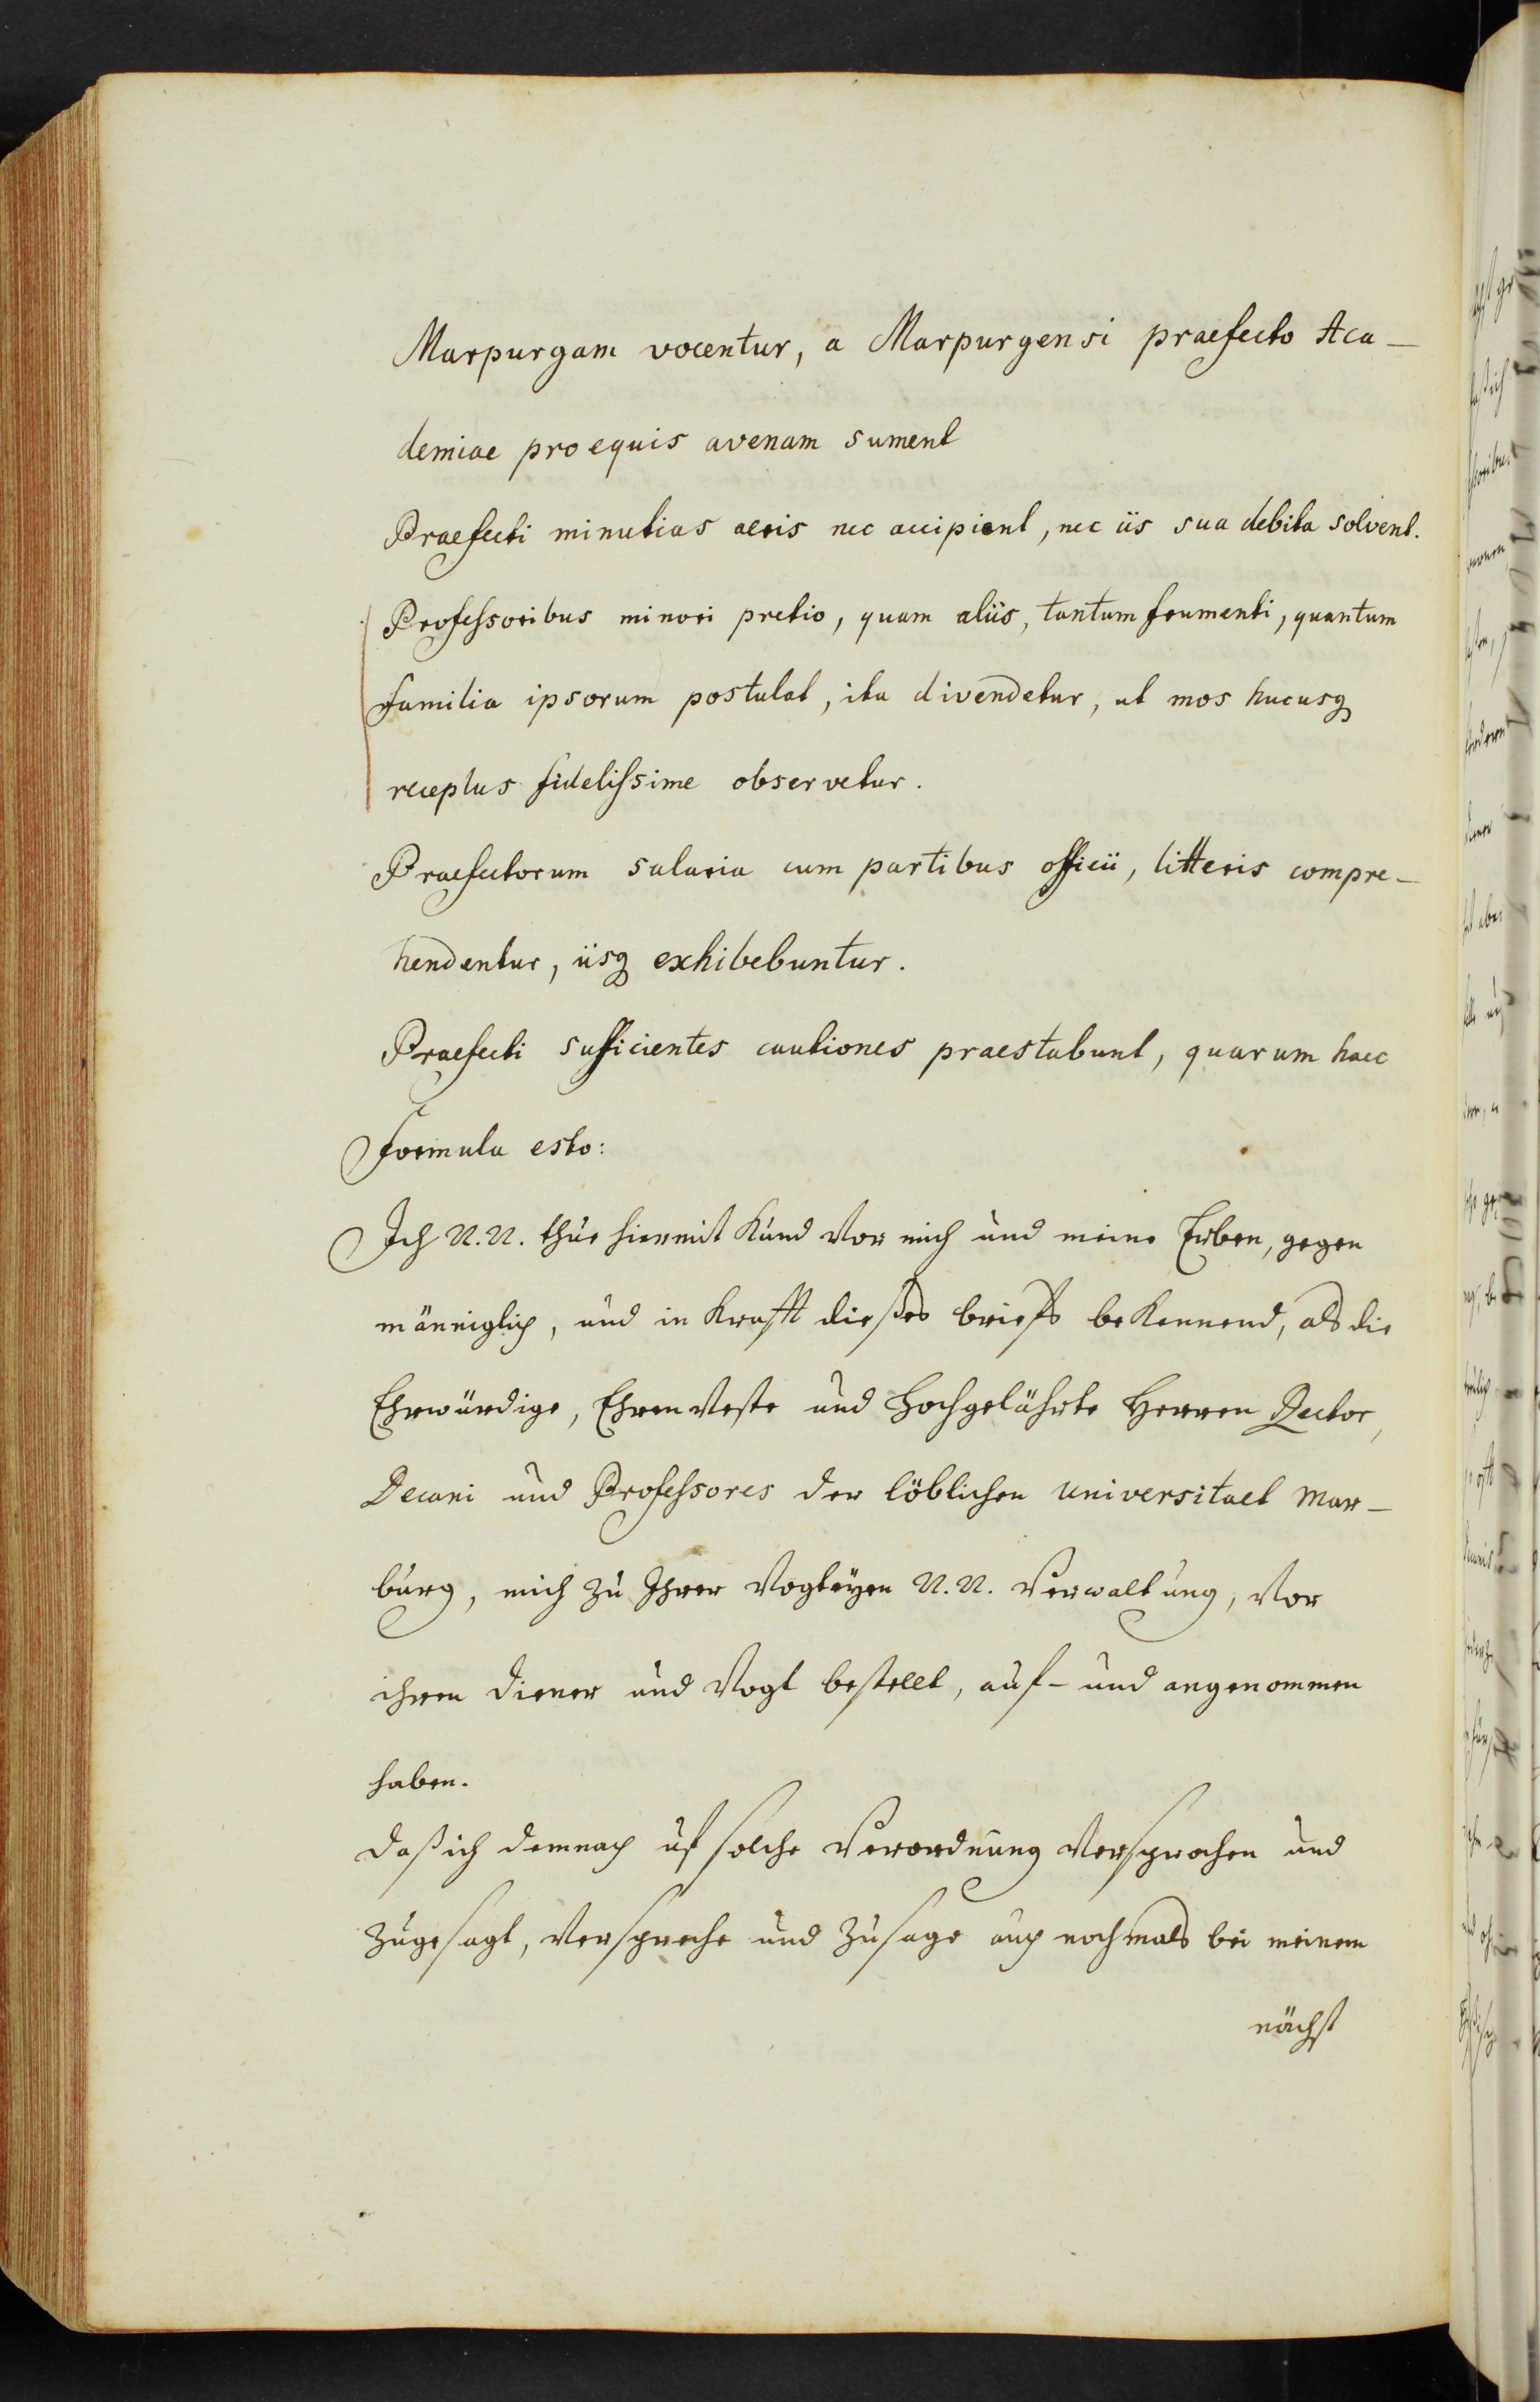 Marpurgam vocentur, a Marpurgensi praefecto Aca-
demiae pro equis avenam sument
Praefecti minutias aeris nec accipient, nec iis sua debita solvent.
Professoribus minori pretio, quam aliis, tantum frumenti, quantum
familia ipsorum postulat, ita divendetur, ut mos hucusq
receptus fidelissime observetur.
Praefectorum salaria cum partibus officii, litteris compre-
hendentur, iisq exhibebuntur.
Praefecti sufficientes cautiones praestabunt, quarum haec
formula esto:
Ich N.N. thue hiermit Kund vor mich und meine Erben, gegen
männiglich, und in Krafft dießes brieffs beKennend, als die
Ehrwürdige, EhrenVeste und Hochgelährte Herren Rector,
Decani und Professores der löblichen Universitaet Mar-
burg, mich zu Ihrer Vogteyen N.N. Verwaltung, vor
ihren Diener und Vogt bestellt, auf- und angenommen
haben.
daß ich demnach uf solche Verordnung Versprochen und
zugesagt, Verspreche und zusage auch nochmals bei meinem
nächst